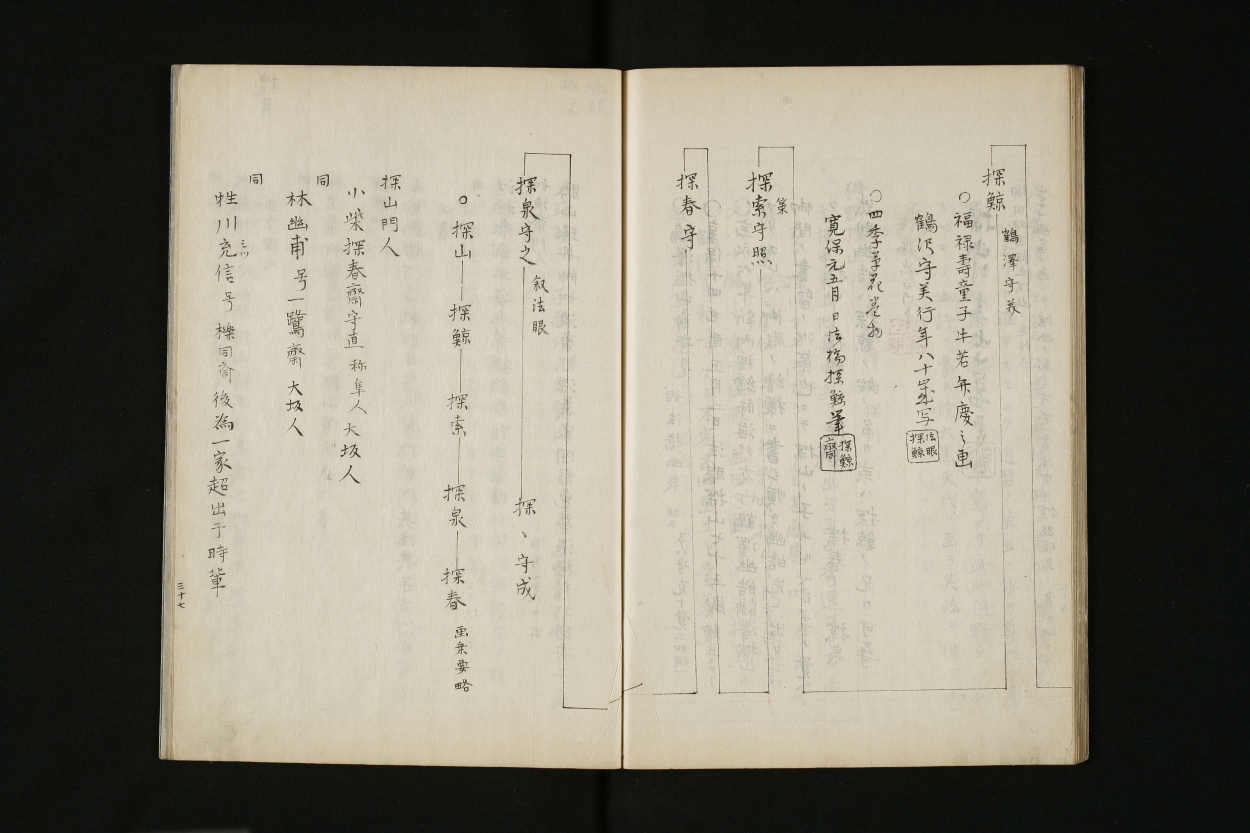 探鯨
鶴澤守美
○福禄壽童子牛若弁慶之画
鶴沢守美行年八十 写
法眼
探鯨
○四季草花巻物
寛保元五月日法橋探鯨筆
探鯨
齋
探索守照
筆
探春守
探泉守之
叙法眼
探〻守成
○探山―探鯨―探索―探泉―探春
画乗要略
探山門人
小柴探春齋守直 称隼人 大坂人
同
林幽甫号一鷺齋 大坂人
同
牲川充信号櫟同斎後為一家超出于時輩
三十七